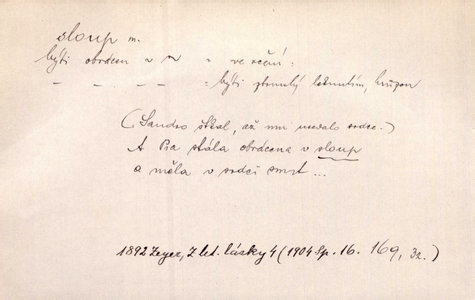 sloup m.
býti obrácen v ~ " ve rčení:
– – – – " býti ztrnulý leknutím, hrůzou
(Sandro štkal, až mu usedalo srdce.)
A Pia stála obrácena v sloup
a měla v srdci smrt ...
1892 Zeyer, Z let. lásky 4 (1904 Sp. 16. 169, 32.)